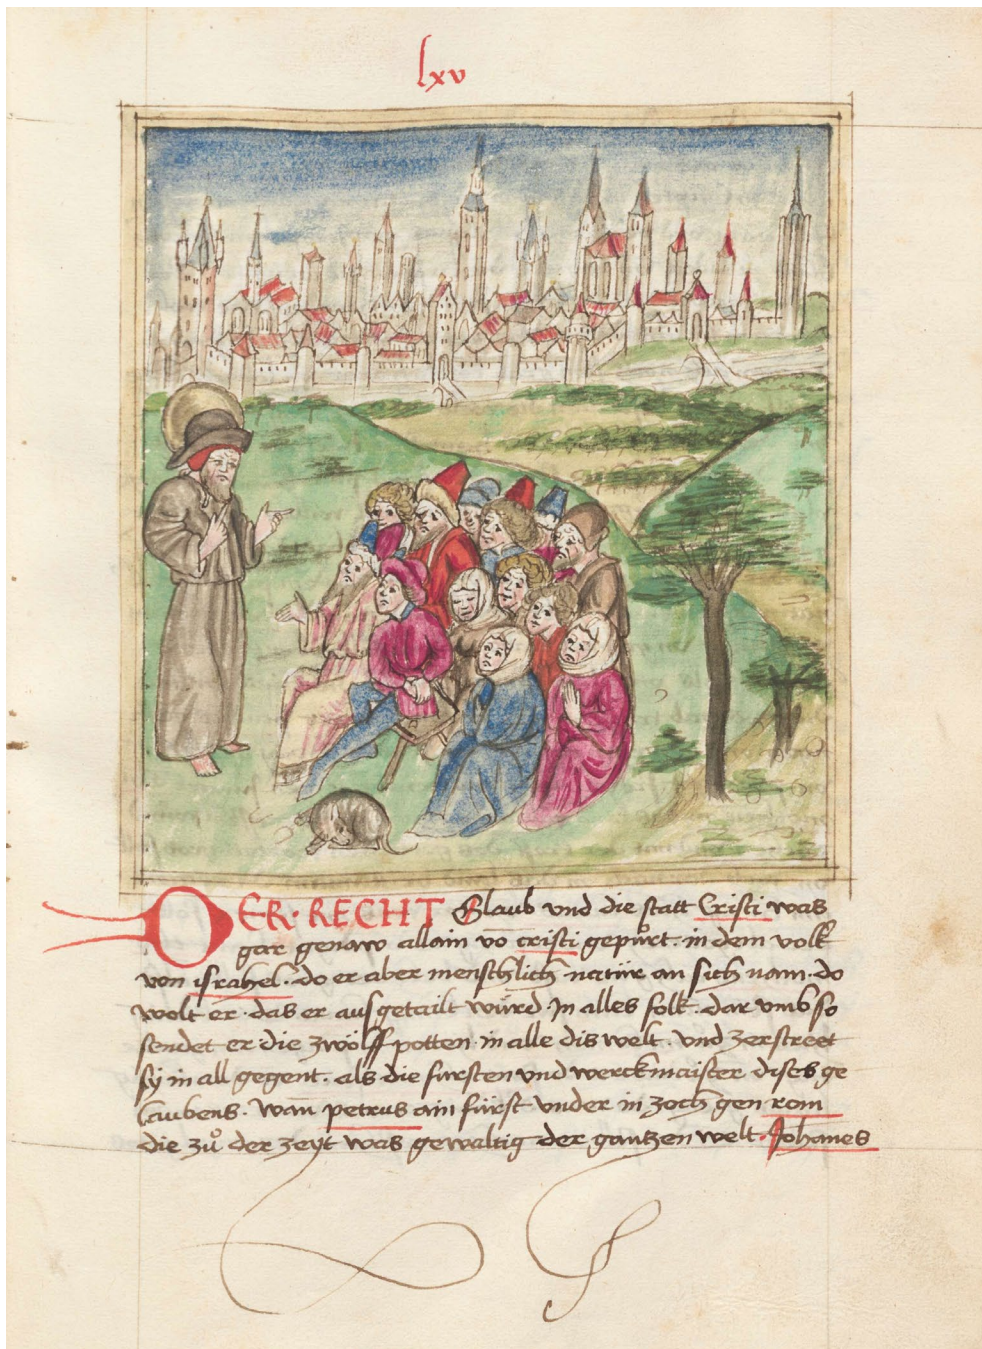 lxv
DER · RECHT Glaub vnd die statt Cristi was
gar genaw allain vō cristi gepůrt · in dem volk
von israhel · do er aber menschlich natür an sich nam · do
wolt er · das er ausgetailt würd · In alles folk · dar vmb so
sendet er die zwölff potten · in alle dis welt · vnd zerstreet
sy in all gegent · als die fürsten vnd werckmaister dises ge
laubens · Wañ petrus ain fürst vnder in zoch gen rom
die zů der zeyt was gewaltig der gantzen welt · Johanes